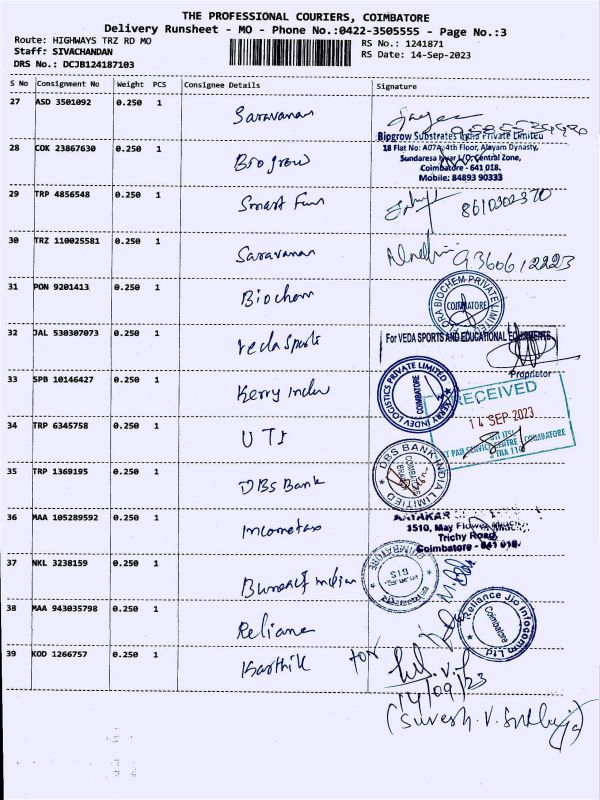 THE PROFESSIONAL COURIERS, COIMBATORE
Delivery Runsheet - MO - Phone No.:0422-3505555 - Page No.:3
Route: HIGHWAYS TRZ RD MO
RS No.: 1241871
Staff: SIVACHANDAN
RS Date: 14-Sep-2023
DRS No.: DCJB124187103
S No Consignment No Weight PCS Consignee Details Signature
27 ASD 3501092 0.250 1 Saravanan
Biogrow Substrates India Private Limited
18 Flat No: A07A, 4th Floor, Alayam Dynasty,
Sundaresa Iyer L/O, Central Zone,
Coimbatore - 641 018.
Mobile: 84893 90333
28 COK 23867630 0.250 1 Biogrow
29 TRP 4856548 0.250 1 Smart Fun 8610302370
30 TRZ 110025581 0.250 1 Saravanan 9360612223
31 PON 9201413 0.250 1 Biochem
BIOCHEM PRIVATE LIMITED
COIMBATORE
32 JAL 530307073 0.250 1 Veda Sports
For VEDA SPORTS AND EDUCATIONAL EQUIPMENTS
Proprietor
33 SPB 10146427 0.250 1 Kerry Indev
KERRY INDEV LOGISTICS PRIVATE LIMITED
COIMBATORE
RECEIVED
14 SEP 2023
34 TRP 6345758 0.250 1 UTI
PAN SERVICE CENTRE COIMBATORE
35 TRP 1369195 0.250 1 DBS Bank
DBS BANK INDIA LIMITED
COIMBATORE
36 MAA 105289592 0.250 1 Incometax
1510, May Flower
Trichy Road,
Coimbatore - 641 018.
37 NKL 3238159 0.250 1
COIMBATORE
BIS
38 MAA 943035798 0.250 1 Reliance
Reliance Jio Infocomm Ltd
Coimbatore
39 KOD 1266757 0.250 1 Karthik for
14/09/23
(Suresh. V.